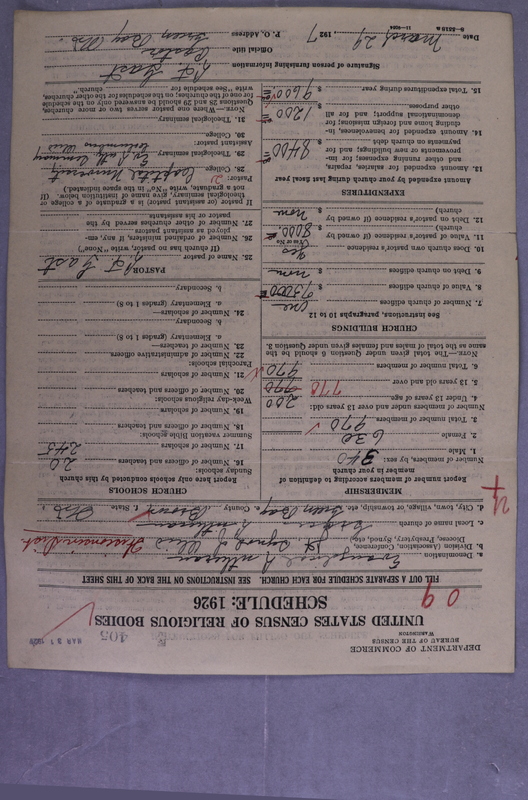 DEPARTMENT OF COMMERCE
BUREAU OF THE CENSUS
WASHINGTON
MAR 31 1927
405
UNITED STATES CENSUS OF RELIGIOUS BODIES
SCHEDULE: 1926
09
FILL OUT A SEPARATE SCHEDULE FOR EACH CHURCH. SEE INSTRUCTIONS ON THE BACK OF THIS SHEET
a. Denomination Evangelical Lutheran
b. Division (Association, Conference, Diocese, Presbytery, Synod, etc.) Jt. Synod of
c. Local name of church Lutheran
d. City, town, village, or township, etc. Green Bay County Brown State Wis.
MEMBERSHIP
Report number of members according to definition of member in your church
Number of members, by sex:
1. Male 340
2. Female 630
3. Total number of members 970
Number of members under and over 13 years old:
4. Under 13 years of age 200
5. 13 years old and over 770 770
6. Total number of members 970
NOTE.—The total given under Question 6 should be the same as the total of males and females given under Question 3.
CHURCH BUILDINGS
See instructions, paragraphs 10 to 12
7. Number of church edifices One
8. Value of church edifices $ 75000
9. Debt on church edifices $ none
10. Does church own pastor's residence Yes
(Yes or No)
11. Value of pastor's residence (if owned by church) $ 8000
12. Debt on pastor's residence (if owned by church) $ none
EXPENDITURES
Amount expended by church during last fiscal year
13. Amount expended for salaries, repairs, and other running expenses; for improvements or new buildings; and for payments on church debt $ 8400
14. Amount expended for benevolences, including home and foreign missions; for denominational support; and for all other purposes $ 1200
15. Total expenditures during year $ 9600
CHURCH SCHOOLS
Report here only schools conducted by this church
Sunday schools:
16. Number of officers and teachers 20
17. Number of scholars 245
Summer vacation Bible schools:
18. Number of officers and teachers
19. Number of scholars
Week-day religious schools:
20. Number of officers and teachers
21. Number of scholars
Parochial schools:
22. Number of administrative officers
23. Number of teachers—
a. Elementary (grades 1 to 8)
b. Secondary
24. Number of scholars—
a. Elementary (grades 1 to 8)
b. Secondary
PASTOR
25. Name of pastor
(If church has no pastor, write "None")
26. Number of ordained ministers, if any, employed as assistant pastors
27. Number of other churches served by the pastor or his assistants
If pastor (or assistant pastor) is a graduate of a college or theological seminary, give name of institution below. (If not a graduate, write "No" in the space indicated.)
Pastor:
28. College Capital University
29. Theological seminary Ev. Luth. Seminary
Columbus Ohio
Assistant pastor:
30. College
31. Theological seminary
NOTE.—Where one pastor serves two or more churches, Questions 28 and 29 should be answered only on the schedule for one of the churches; on the schedules for the other churches, write "See schedule for church."
Signature of person furnishing information
Official title Pastor
P. O. Address Green Bay Wis.
Date March 29 1927